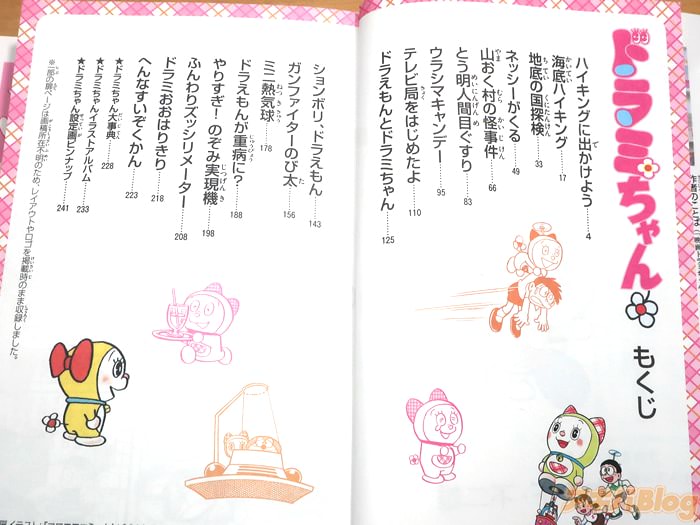 ドラミちゃん
もくじ
ハイキングに出かけよう……4
海底ハイキング……17
地底の国探検……33
ネッシーがくる……49
山おく村の怪事件……66
とう明人間目ぐすり……83
ウラシマキャンデー……95
テレビ局をはじめたよ……110
ドラえもんとドラミちゃん……125
ションボリ、ドラえもん……143
ガンファイターのび太……156
ミニ熱気球……178
ドラえもんが重病に?……188
やりすぎ!のぞみ実現機……198
ふんわりズッシリメーター……208
ドラミおおはりきり……218
へんなすいぞくかん……223
★ドラミちゃん大事典……228
★ドラミちゃんイラストアルバム……233
★ドラミちゃん設定画ピンナップ……241
※一部の扉ページは原稿所在不明のため、レイアウトやロゴを掲載時のまま収録しました。
Blog